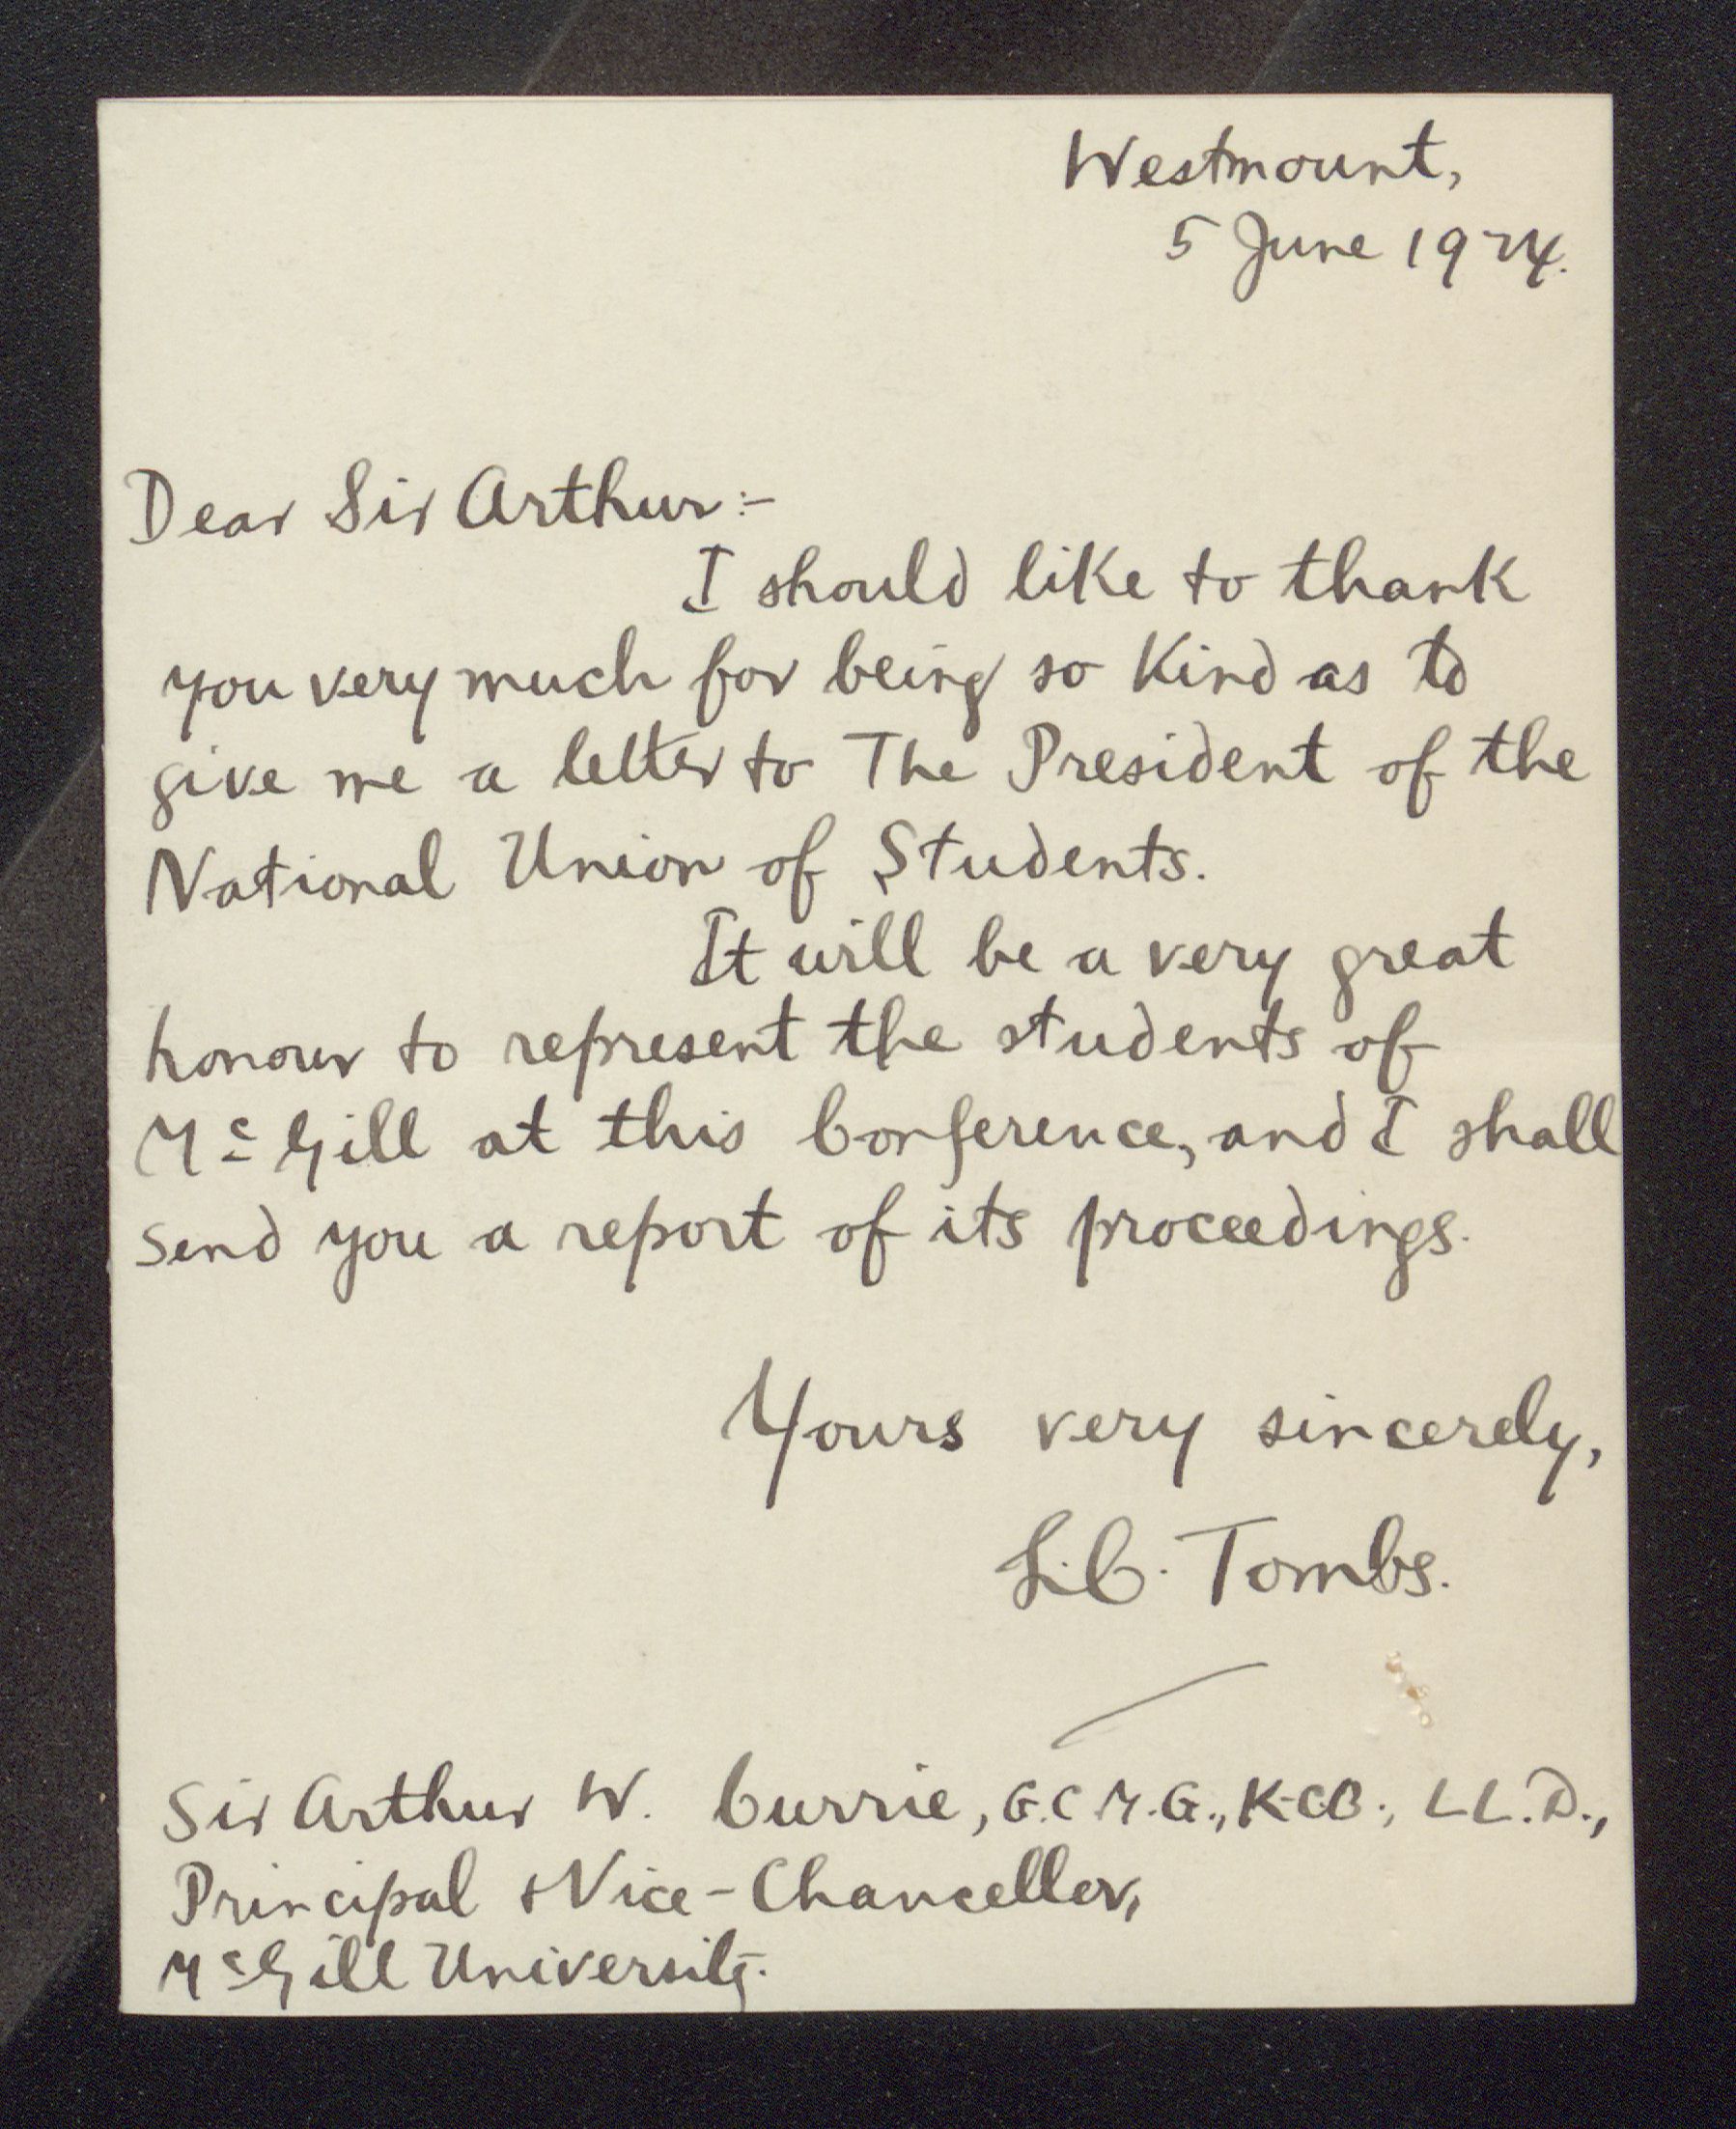 Westmount,
5 June 1924.
Dear Sir Arthur:-
I should like to thank
you very much for being so kind as to
give me a letter to The President of the
National Union of Students.
It will be a very great
honour to represent the students of
McGill at this Conference, and I shall
send you a report of its proceedings.
Yours very sincerely,
L.C. Tombs.
Sir Arthur W. Currie, G.C.M.G., K.C.B., LL.D.,
Principal & Vice-Chancellor,
McGill University.